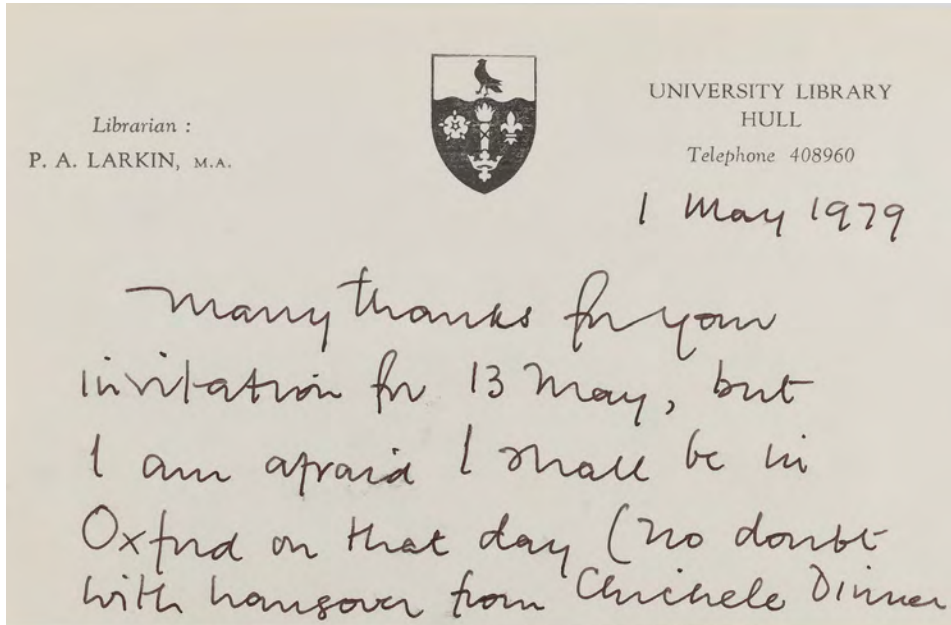 Librarian :
P. A. LARKIN, M.A.
UNIVERSITY LIBRARY
HULL
Telephone 408960
1 May 1979
Many thanks for your
invitation for 13 May, but
I am afraid I shall be in
Oxford on that day (no doubt
with hangover from Chichele Dinner